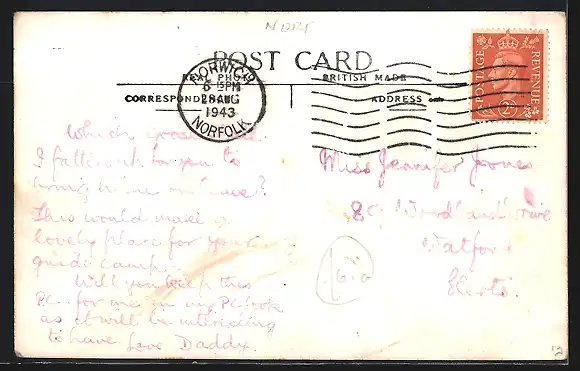 NORF
POST CARD
REAL PHOTO
BRITISH MADE
CORRESPONDENCE
ADDRESS
NORWICH
6 15 PM
28 AUG
1943
NORFOLK
POSTAGE
REVENUE
Which
I for you to
?
This would make a
lovely place for your
guide camp.
Will you keep this
P.C. for me in my P.C. book
as it will be interesting
to have Love Daddy.
Miss Jennifer Jones
8
Watford
Herts.
13